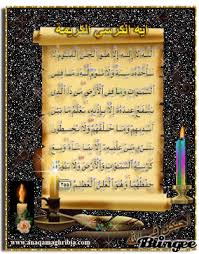 آية الكرسي الكريمة
اللَّهُ لَا إِلَٰهَ إِلَّا هُوَ الْحَيُّ الْقَيُّومُ لَا
تَأْخُذُهُ سِنَةٌ وَلَا نَوْمٌ لَّهُ مَا فِي
السَّمَاوَاتِ وَمَا فِي الْأَرْضِ مَن ذَا الَّذِي
يَشْفَعُ عِندَهُ إِلَّا بِإِذْنِهِ يَعْلَمُ مَا بَيْنَ
أَيْدِيهِمْ وَمَا خَلْفَهُمْ وَلَا يُحِيطُونَ
بِشَيْءٍ مِّنْ عِلْمِهِ إِلَّا بِمَا شَاءَ وَسِعَ
كُرْسِيُّهُ السَّمَاوَاتِ وَالْأَرْضَ وَلَا يَئُودُهُ
حِفْظُهُمَا وَهُوَ الْعَلِيُّ الْعَظِيمُ ٢٥٥
www.anaqamaghribia.com
Blingee